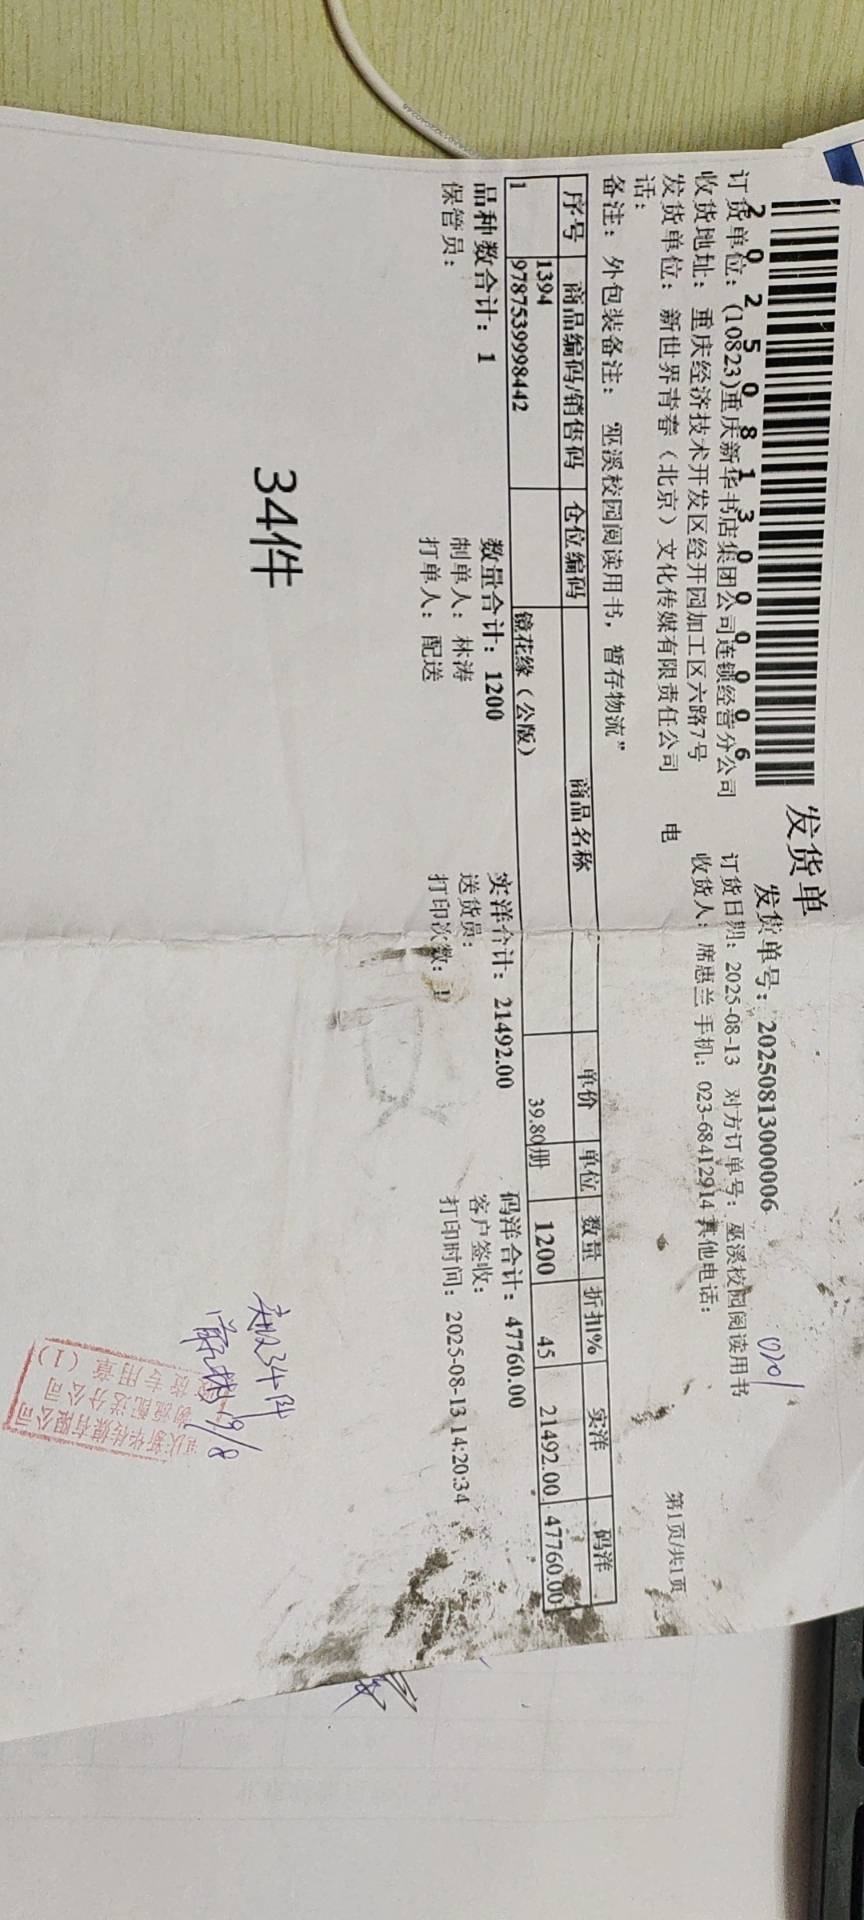 发货单
20250813000006
发货单号：20250813000006
订货单位：(10823)重庆新华书店集团公司连锁经营分公司 订货日期：2025-08-13 对方订单号：巫溪校园阅读用书
收货地址：重庆经济技术开发区经开园加工区六路7号 收货人：席惠兰 手机：023-68412914 其他电话：
发货单位：新世界青春（北京）文化传媒有限责任公司 电
话：
第1页/共1页
备注：外包装备注：巫溪校园阅读用书，暂存物流”
序号 商品编码/销售码 仓位编码 商品名称 单价 单位 数量 折扣% 实洋 码洋
1 1394 镜花缘（公版） 39.80 册 1200 45 21492.00 47760.00
9787539998442
品种数合计：1 数量合计：1200 实洋合计：21492.00 码洋合计：47760.00
保管员： 制单人：林涛 送货员： 客户签收：
打单人：配送 打印次数：1 打印时间：2025-08-13 14:20:34
34件
实收34件
19/8
重庆新华传媒有限公司
物流配送分公司
收货专用章
（1）